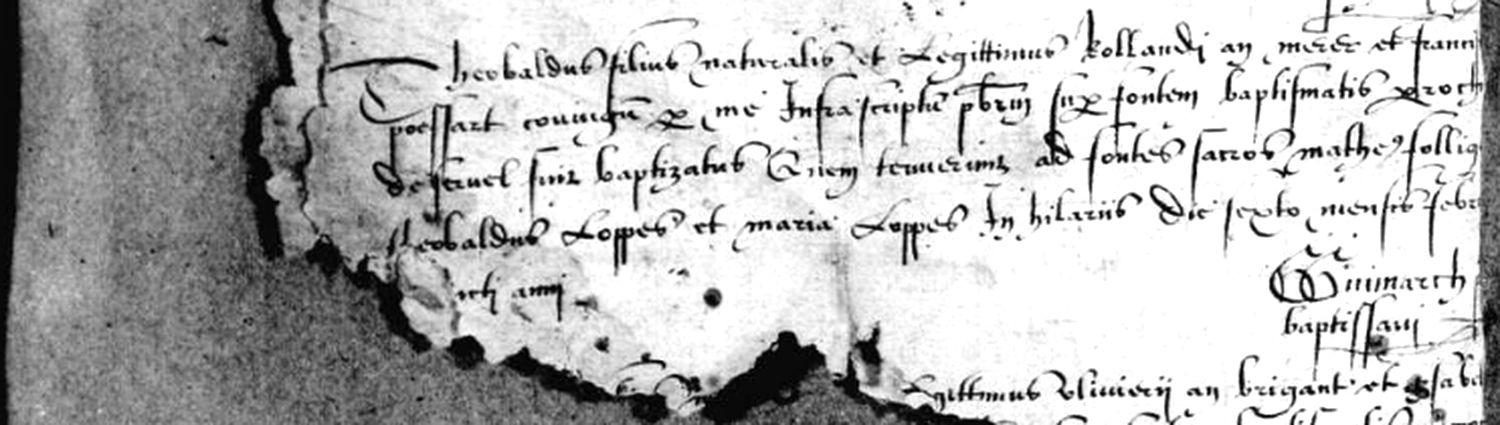 Theobaldus filius naturalis et Legittimus Rollandi an merer et franc
poessart coniugu p me Infrascriptu pbrm sup fontem baptismatis proch
de servel fuit baptizatus Quem tenuerunt ad fontes sacros matheus
theobaldus Loppes et maria Loppes In hilariis die sexto mensis febr
anni
Guimarch
baptissavi
Legittimus Oliuerij an brigant et ysabe